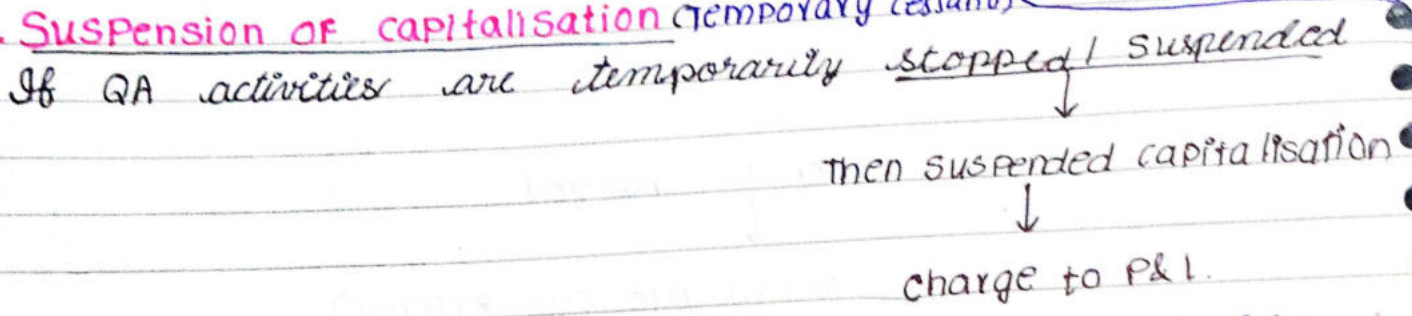 Suspension OF capitalisation (Temporary
If QA activities are temporarily stopped / suspended
Then suspended capitalisation
charge to P&L.